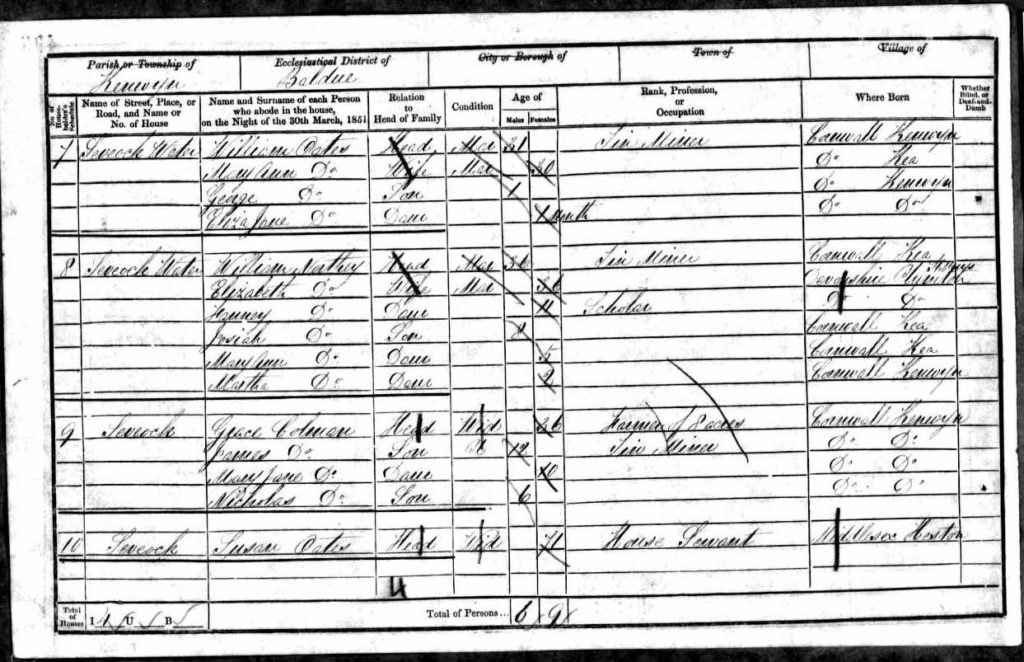 Parish or Township of Ecclesiastical District of City or Borough of Town of Village of
Kenwyn Baldue
No. of House-holder's Schedule Name of Street, Place, or Road, and Name or No. of House Name and Surname of each Person who abode in the house, on the Night of the 30th March, 1851 Relation to Head of Family Condition Age of Males Females Rank, Profession, or Occupation Where Born Whether Blind, or Deaf-and-Dumb
7 Seveock Water William Oates Head Mar 31 Tin Miner Cornwall Kenwyn
Mary Ann Do Wife Mar 30 Do Kea
George Do Son 1 Do Kenwyn
Eliza Jane Do Daur 1 Month Do Do
8 Seveock Water William Northey Head Mar Tin Miner Cornwall Kea
Elizabeth Do Wife Mar 36 Devonshire
Do Daur 11 Scholar Do Do
Josiah Do Son 8 Cornwall Kea
Mary Ann Do Daur 5 Cornwall Kea
Martha Do Daur 2 Cornwall Kenwyn
9 Seveock Grace Colman Head Wid 36 Farmer of 8 acres Cornwall Kenwyn
James Do Son U 12 Tin Miner Do Do
Mary Jane Do Daur 10 Do Do
Nicholas Do Son 6 Do Do
10 Seveock Susan Oates Head Wid 71 House Servant Middlesex Heston
4
Total of Houses I 4 U B Total of Persons... 6 9